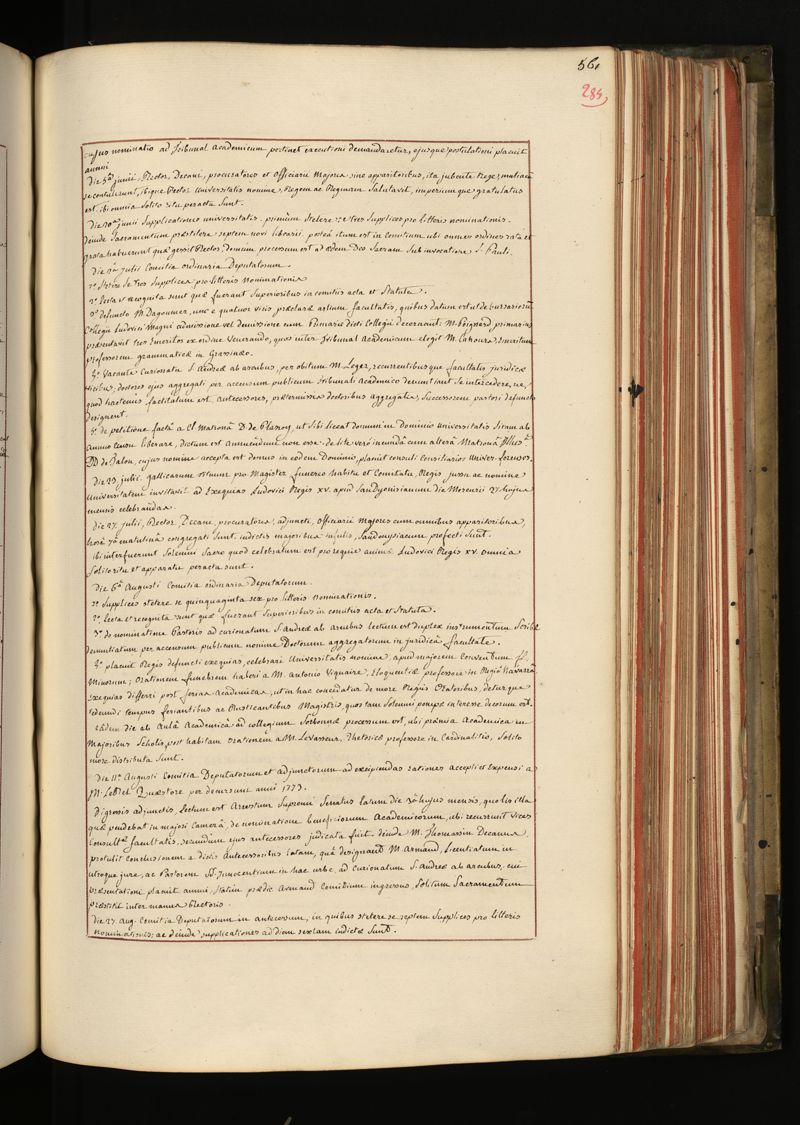 561
285
cujus nominatio ad Tribunal Academicum pertinet executioni demandaretur, ejusque postulationi placuit
annui
Die 5â junii, Rector, Decani, procuratores et officiarii Majores sine apparitoribus, ita jubente Rege,
se contulerunt, ibique Rector Universitatis nomine, Regem ac Reginam Salutavit, imperiumque gratulatus
est. ibi omnia Solito ritu peracta sunt.
Die 10â junii Supplicatione universitatis. primùm Stetere se tres Supplices pro litteris nominationis.
deinde Sacramentum præstitere septem novi librarii. posteà itum est in Comitium ubi omnes ordines rata et
grata habuerunt quæ gessit Rector, Demùm processum est ad ædem Deo Sacram Sub invocatione S. Pauli.
Die 2â Julii Comitia ordinaria Deputatorum.
1º Stetere se tres Supplices pro litteris Nominationis
2º lecta et recognita sunt quæ fuerant Superioribus in comitiis acta et Statuta.
3º defuncto M. Dagoumer, uno e quatuor viris præclaræ artium facultatis, quibus datum est ut de bursariorum
Collegii Ludovici Magni admissione vel demissione cum Primario dicti Collegii decernant. M. Poignard primarius
præsentavit tres Emeritos ex ordine Venerando, quos inter Tribunal Academicum elegit M. Cahours, Emeritum
professorem grammaticæ in Grassinæo.
4º Vacante Curionatu S. Andreæ ab arcubus, per obitum M. Leger, recurrentibusque facultatis juridicæ
vicibus, doctores ejus aggregati per accensum publicum tribunali Academico denuntiant Se intercedere, ne,
quod hactenùs factitatum est, Antecessores, prætermissis doctoribus Aggregatis, Successorem pastori defuncto
designent.
5º de petitione factâ a Cl Matronâ D. de Plasnoy, ut Sibi liceat domum in Dominio Universitatis Sitam ab
annuo Censu liberare, dictum est annuendum non esse. de lite verò ineundâ cum alterâ Matronâ
DD de Talon, cujus nomine accepta est domus in eodem Dominio, placuit consuli Consiliarios Univer. forenses.
Die 23. julii. gallicarum rituum pro Magister funereo habitu et Comitatu, Regis jussu ac nomine
Universitatem invitavit ad Exequias Ludovici Regis XV. apud Sandyonisianum die Mercurii 27 hujus
mensis celebrandas.
Die 27. julii, Rector, Decani, procuratores, adjuncti, officiarii Majores cum omnibus apparitoribus,
horâ 7â matutinâ congregati Sunt. indictis majoribus infulis, Sandyonisiacum profecti Sunt.
ibi interfuerunt Solemni Sacro quod celebratum est pro requie animæ Ludovici Regis XV. omnia
Solito ritu et apparatu peracta sunt.
Die 6â Augusti Comitia ordinaria Deputatorum.
1º Supplices stetere se quinquaginta sex pro litteris nominationis.
2º lecta et recognita sunt quæ fuerant Superioribus in comitiis acta et Statuta.
3º de nominatione Pastoris ad curionatum S. Andreæ ab arcubus lectum est duplex instrumentum Scribæ
denuntiatum per accensum publicum nomine Doctorum aggregatorum in juridicâ facultate.
4º placuit Regis defuncti exequias, celebrari Universitatis nomine, apud majorem Conventum ff.
Minorum; orationem funebrem haberi a M. Antonio Viguaire, Eloquentiæ professore in Regiâ Navarrâ
Exequias differri post ferias Academicas, ut in hac concedatur de more Regiis Oratoribus, detur que
redeundi tempus feriantibus ac Rusticantibus Magistris, quos tam Solemni pompæ interesse decorum est.
Eâdem die ab Aulâ Academicâ ad collegium Sorbonæ processum est, ubi præmia Academica in
Majoribus Scholis, post habitam orationem a M. Levasseur, Rhetoricæ professore in Cardinalitio, Solito
more distributa Sunt.
Die 11â Augusti Comitia Deputatorum et adjunctorum ad excipiendas rationes accepti et Expensi a
M. LeBel Quæstore per decursum anni 1773.
Digressis adjunctis, Lectum est Arrestum Supremi Senatus latum die 30â hujus mensis, quo lis illa
quæ pendebat in majori Camerâ, de nominatione beneficiorum Academicorum, ubi recurrunt vices
Consultæ facultatis, secundùm ejus antecessores judicata fuit. deinde M. Thomassin Decanus
protulit Conclusionem a dictis Antecessoribus latam, quâ designant M. Armand, Licentiatum in
utroque jure, ac Pastorem SS. Innocentium in hac urbe, ad curionatum S. Andreæ ab arcubus, cui
præsentationi placuit annui. Statim prædic. Armand Comitium ingressus, Solitum Sacramentum
præstitit inter manus Rectoris.
Die 27. Aug. Comitia Deputatorum in antecessum, in quibus stetere se septem Supplices pro litteris
nominationis; ac deinde supplicationes ad diem sextam indictæ Sunt.